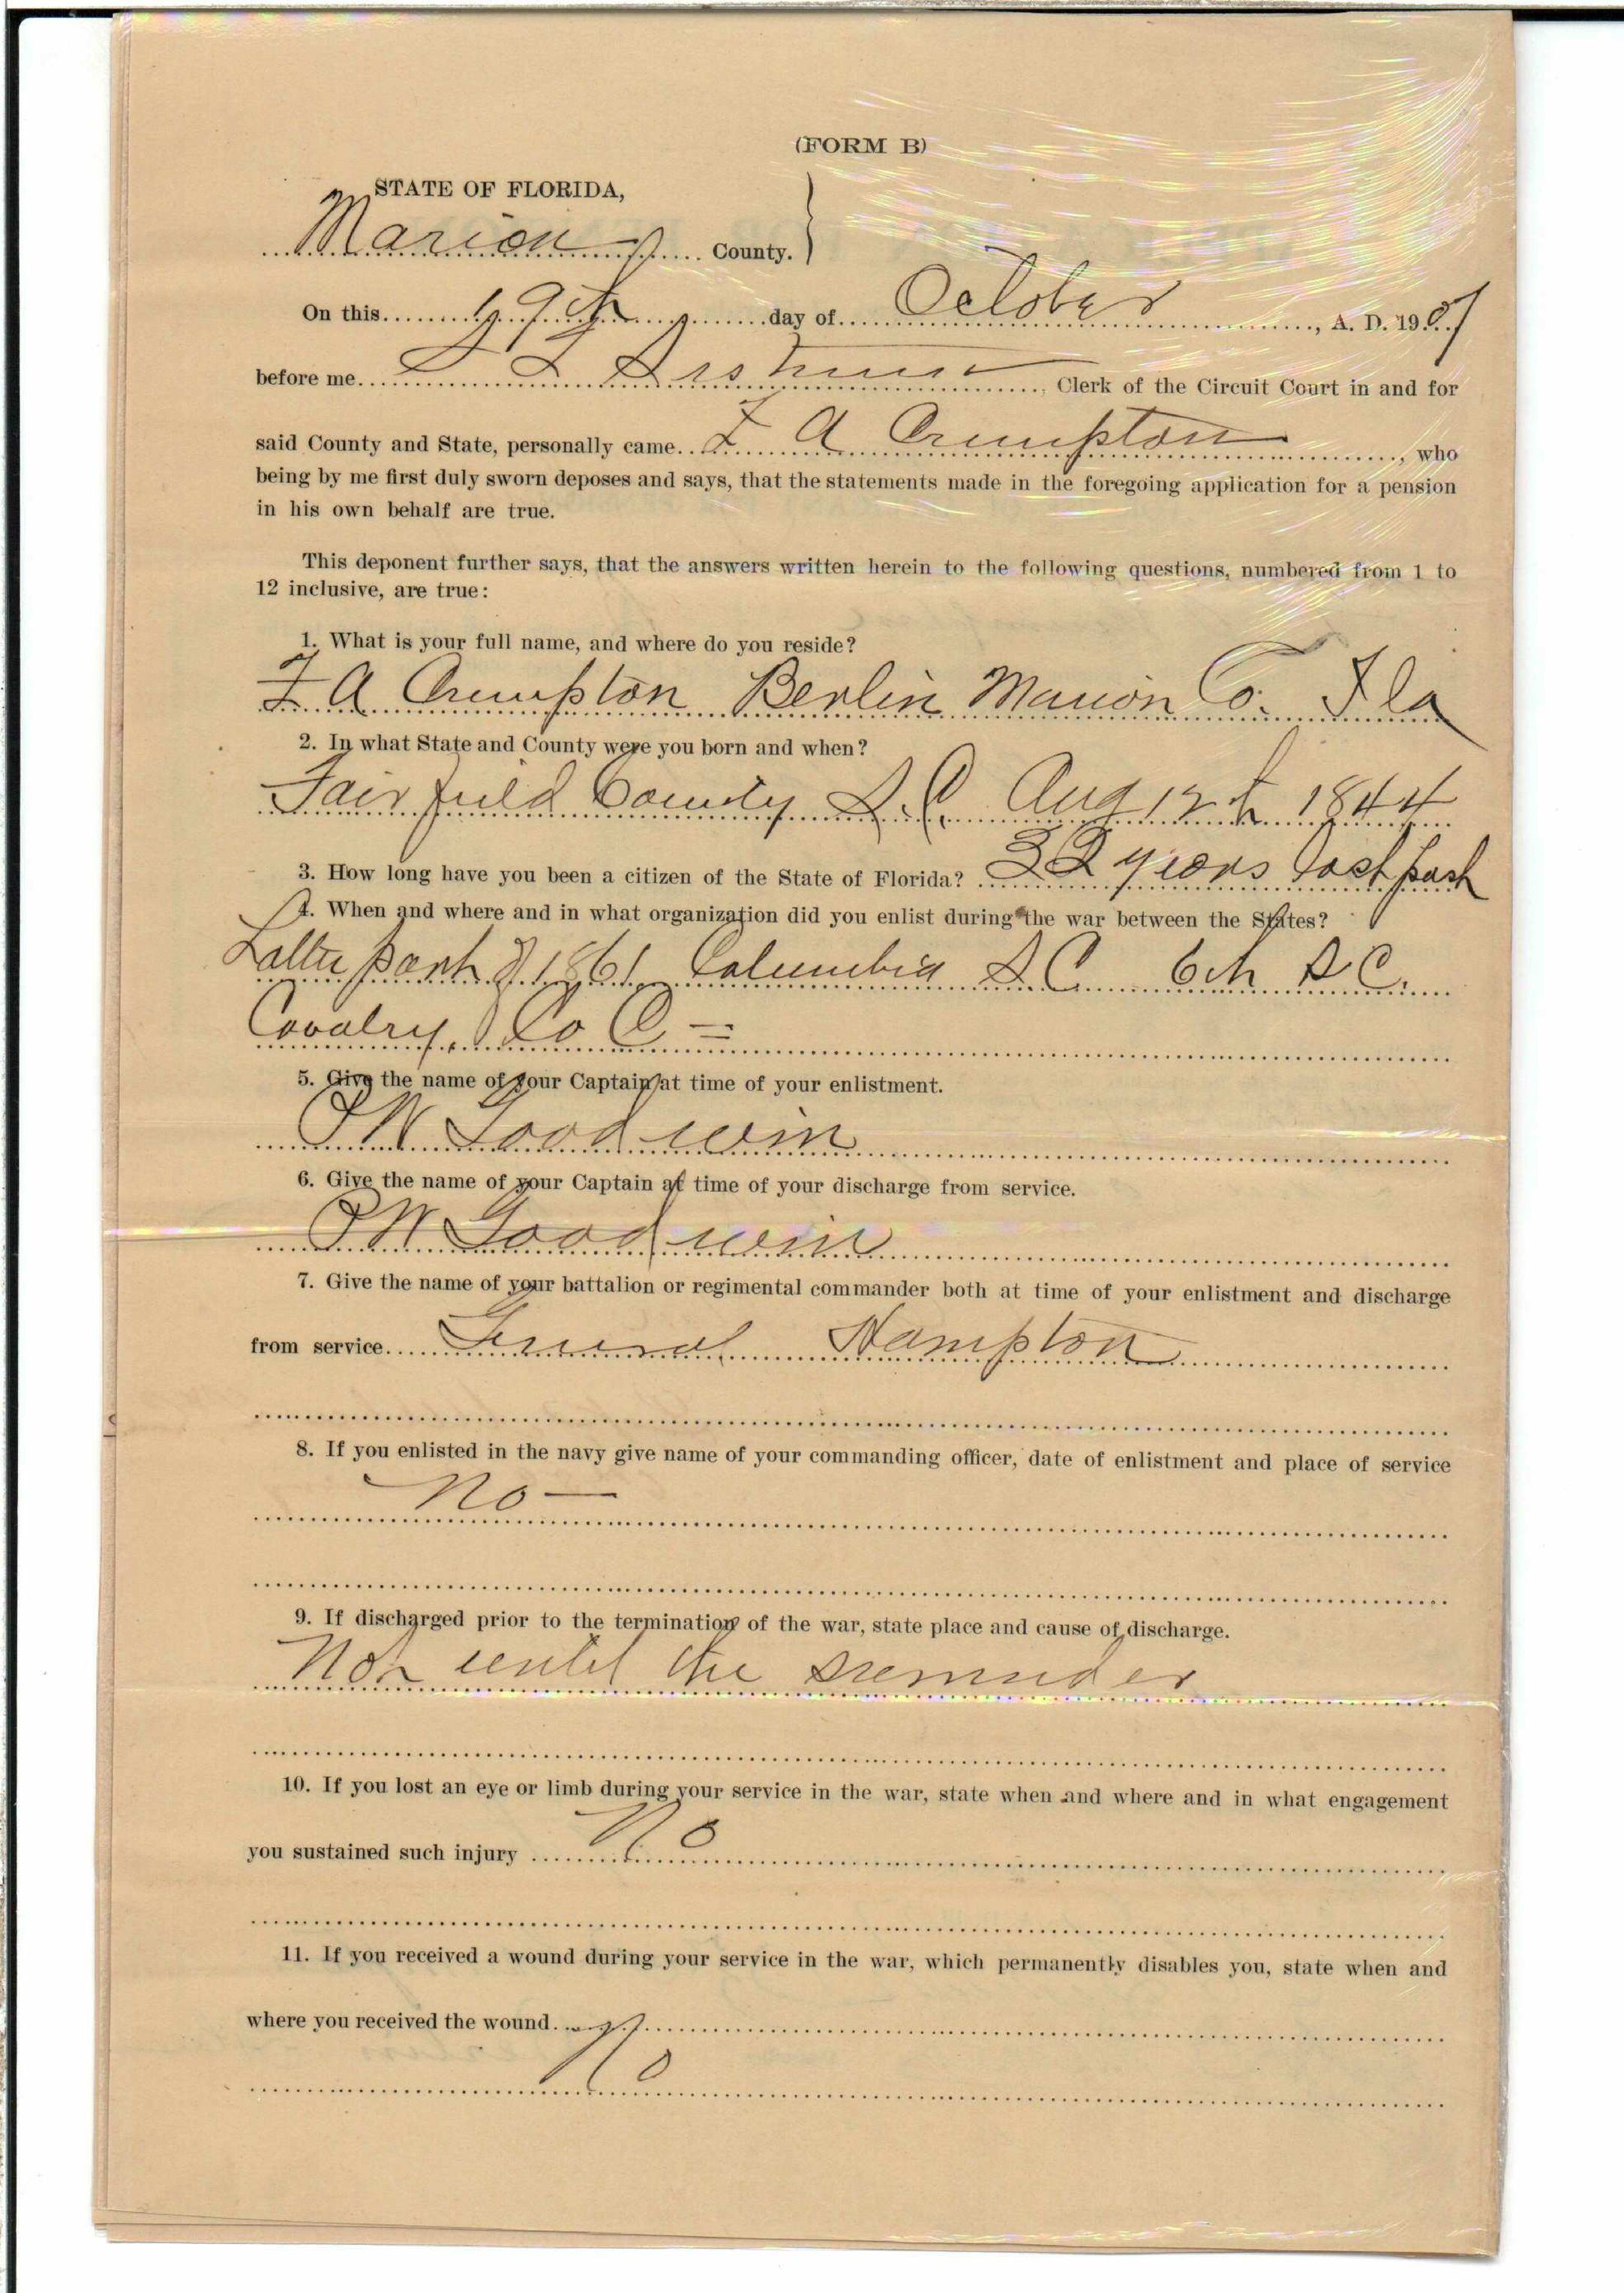 (FORM B)
STATE OF FLORIDA,
Marion County.
On this 19th day of October, A. D. 1907
before me, Clerk of the Circuit Court in and for
said County and State, personally came F A Crumpton, who
being by me first duly sworn deposes and says, that the statements made in the foregoing application for a pension
in his own behalf are true.
This deponent further says, that the answers written herein to the following questions, numbered from 1 to
12 inclusive, are true:
1. What is your full name, and where do you reside?
F A Crumpton Berlin Marion Co. Fla
2. In what State and County were you born and when?
Fairfield County S.C. Aug 12th 1844
3. How long have you been a citizen of the State of Florida? 32 years last past
4. When and where and in what organization did you enlist during the war between the States?
Latter part of 1861 Columbia S.C. 6th S C.
Cavalry, Co C =
5. Give the name of your Captain at time of your enlistment.
P W Goodwin
6. Give the name of your Captain at time of your discharge from service.
P W Goodwin
7. Give the name of your battalion or regimental commander both at time of your enlistment and discharge
from service General Hampton
8. If you enlisted in the navy give name of your commanding officer, date of enlistment and place of service
No —
9. If discharged prior to the termination of the war, state place and cause of discharge.
Not until the
10. If you lost an eye or limb during your service in the war, state when and where and in what engagement
you sustained such injury No
11. If you received a wound during your service in the war, which permanently disables you, state when and
where you received the wound.
No